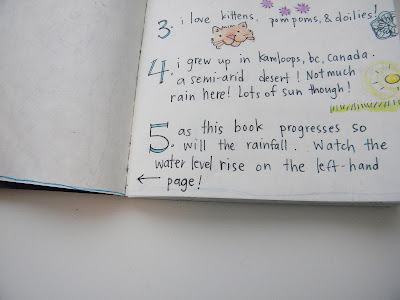 3. i love kittens, pompoms, & doilies!
4. i grew up in kamloops, bc, canada.
a semi-arid desert! Not much
rain here! Lots of sun though!
5. as this book progresses so
will the rainfall. Watch the
water level rise on the left-hand
← page!